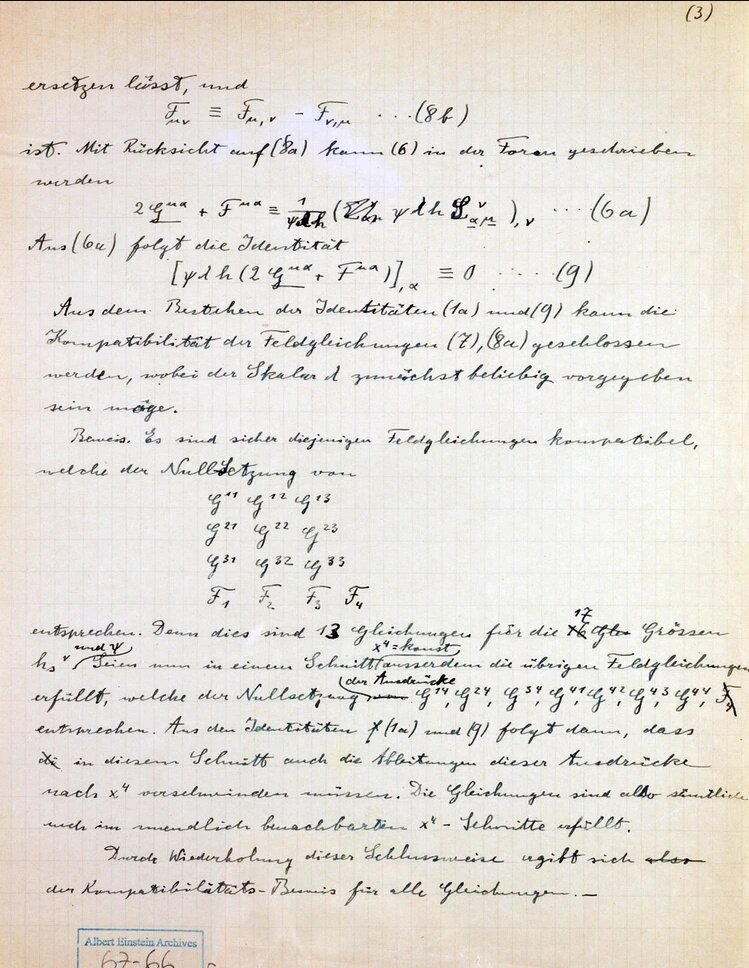 (3)
ersetzen lässt, und
F_μν ≡ F_μ,ν − F_ν,μ ...(8b)
ist. Mit Rücksicht auf (8a) kann (6) in der Form geschrieben
werden
2 G^μα + F^μα ≡ 1/ψλh ( ψλh ),ν ...(6a)
Aus (6a) folgt die Identität
[ψλh (2 G^μα + F^μα)],α ≡ 0 ....(9)
Aus dem Bestehen der Identitäten (1a) und (9) kann die
Kompatibilität der Feldgleichungen (7), (8a) geschlossen
werden, wobei der Skalar λ zunächst beliebig vorgegeben
sein möge.
Beweis. Es sind sicher diejenigen Feldgleichungen kompatibel,
welche der Nullsetzung von
G^11 G^12 G^13
G^21 G^22 G^23
G^31 G^32 G^33
F_1 F_2 F_3 F_4
entsprechen. Denn dies sind 13 Gleichungen für die 17 Grössen
h_s^ν und ψ. Seien nun in einem Schnitt x^4 = konst ausserdem die übrigen Feldgleichungen
erfüllt, welche der Nullsetzung der Ausdrücke G^14, G^24, G^34, G^41, G^42, G^43, G^44
entsprechen. Aus den Identitäten (1a) und (9) folgt dann, dass
in diesem Schnitt auch die Ableitungen dieser Ausdrücke
nach x^4 verschwinden müssen. Die Gleichungen sind also sämtlich
auch im unendlich benachbarten x^4-Schnitte erfüllt.
Durch Wiederholung dieser Schlussweise ergibt sich
der Kompatibilitäts-Beweis für alle Gleichungen.—
Albert Einstein Archives
67-66